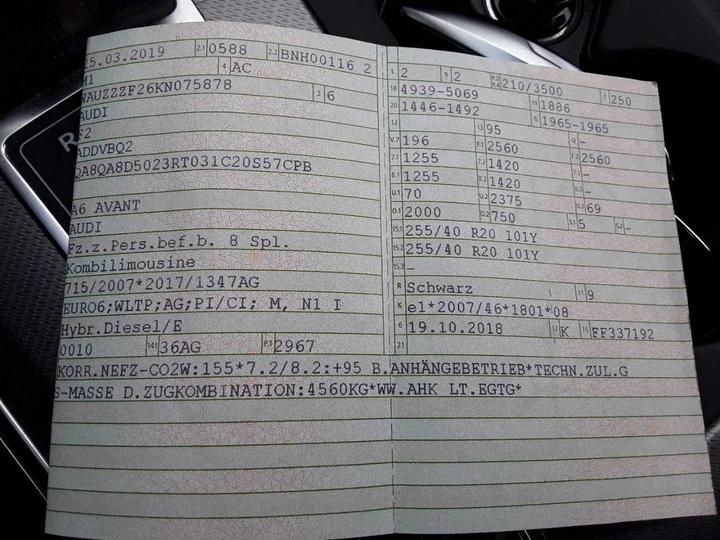 25.03.2019 2.1 0588 2.2 BNH00116 2
M1 4 AC
WAUZZZF26KN075878 3 6
AUDI
F2
ADDVBQ2
QA8QA8D5023RT031C20S57CPB
A6 AVANT
AUDI
Fz.z.Pers.bef.b. 8 Spl.
Kombilimousine
715/2007*2017/1347AG
EURO6;WLTP;AG;PI/CI; M, N1 I
Hybr.Diesel/E
0010 14.1 36AG P.1 2967
L 2 9 2 P.2 P.4 210/3500 T 250
18 4939-5069 19 1886
20 1446-1492 G 1965-1965
12 13 95 Q -
V.7 196 F.1 2560 F.2 2560
7.1 1255 7.2 1420 7.3 -
8.1 1255 8.2 1420 8.3 -
U.1 70 U.2 2375 U.3 69
O.1 2000 O.2 750 S.1 5 S.2 -
15.1 255/40 R20 101Y
15.2 255/40 R20 101Y
15.3 -
R Schwarz 11 9
K e1*2007/46*1801*08
6 19.10.2018 17 K 16 FF337192
21
KORR.NEFZ-CO2W:155*7.2/8.2:+95 B.ANHÄNGEBETRIEB*TECHN.ZUL.G
S-MASSE D.ZUGKOMBINATION:4560KG*WW.AHK LT.EGTG*